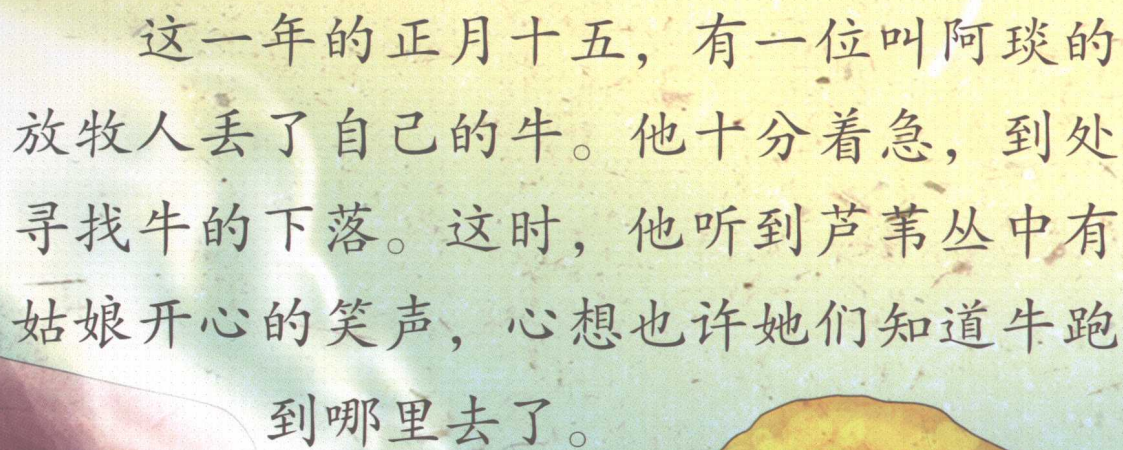 这一年的正月十五，有一位叫阿琰的
放牧人丢了自己的牛。他十分着急，到处
寻找牛的下落。这时，他听到芦苇丛中有
姑娘开心的笑声，心想也许她们知道牛跑
到哪里去了。